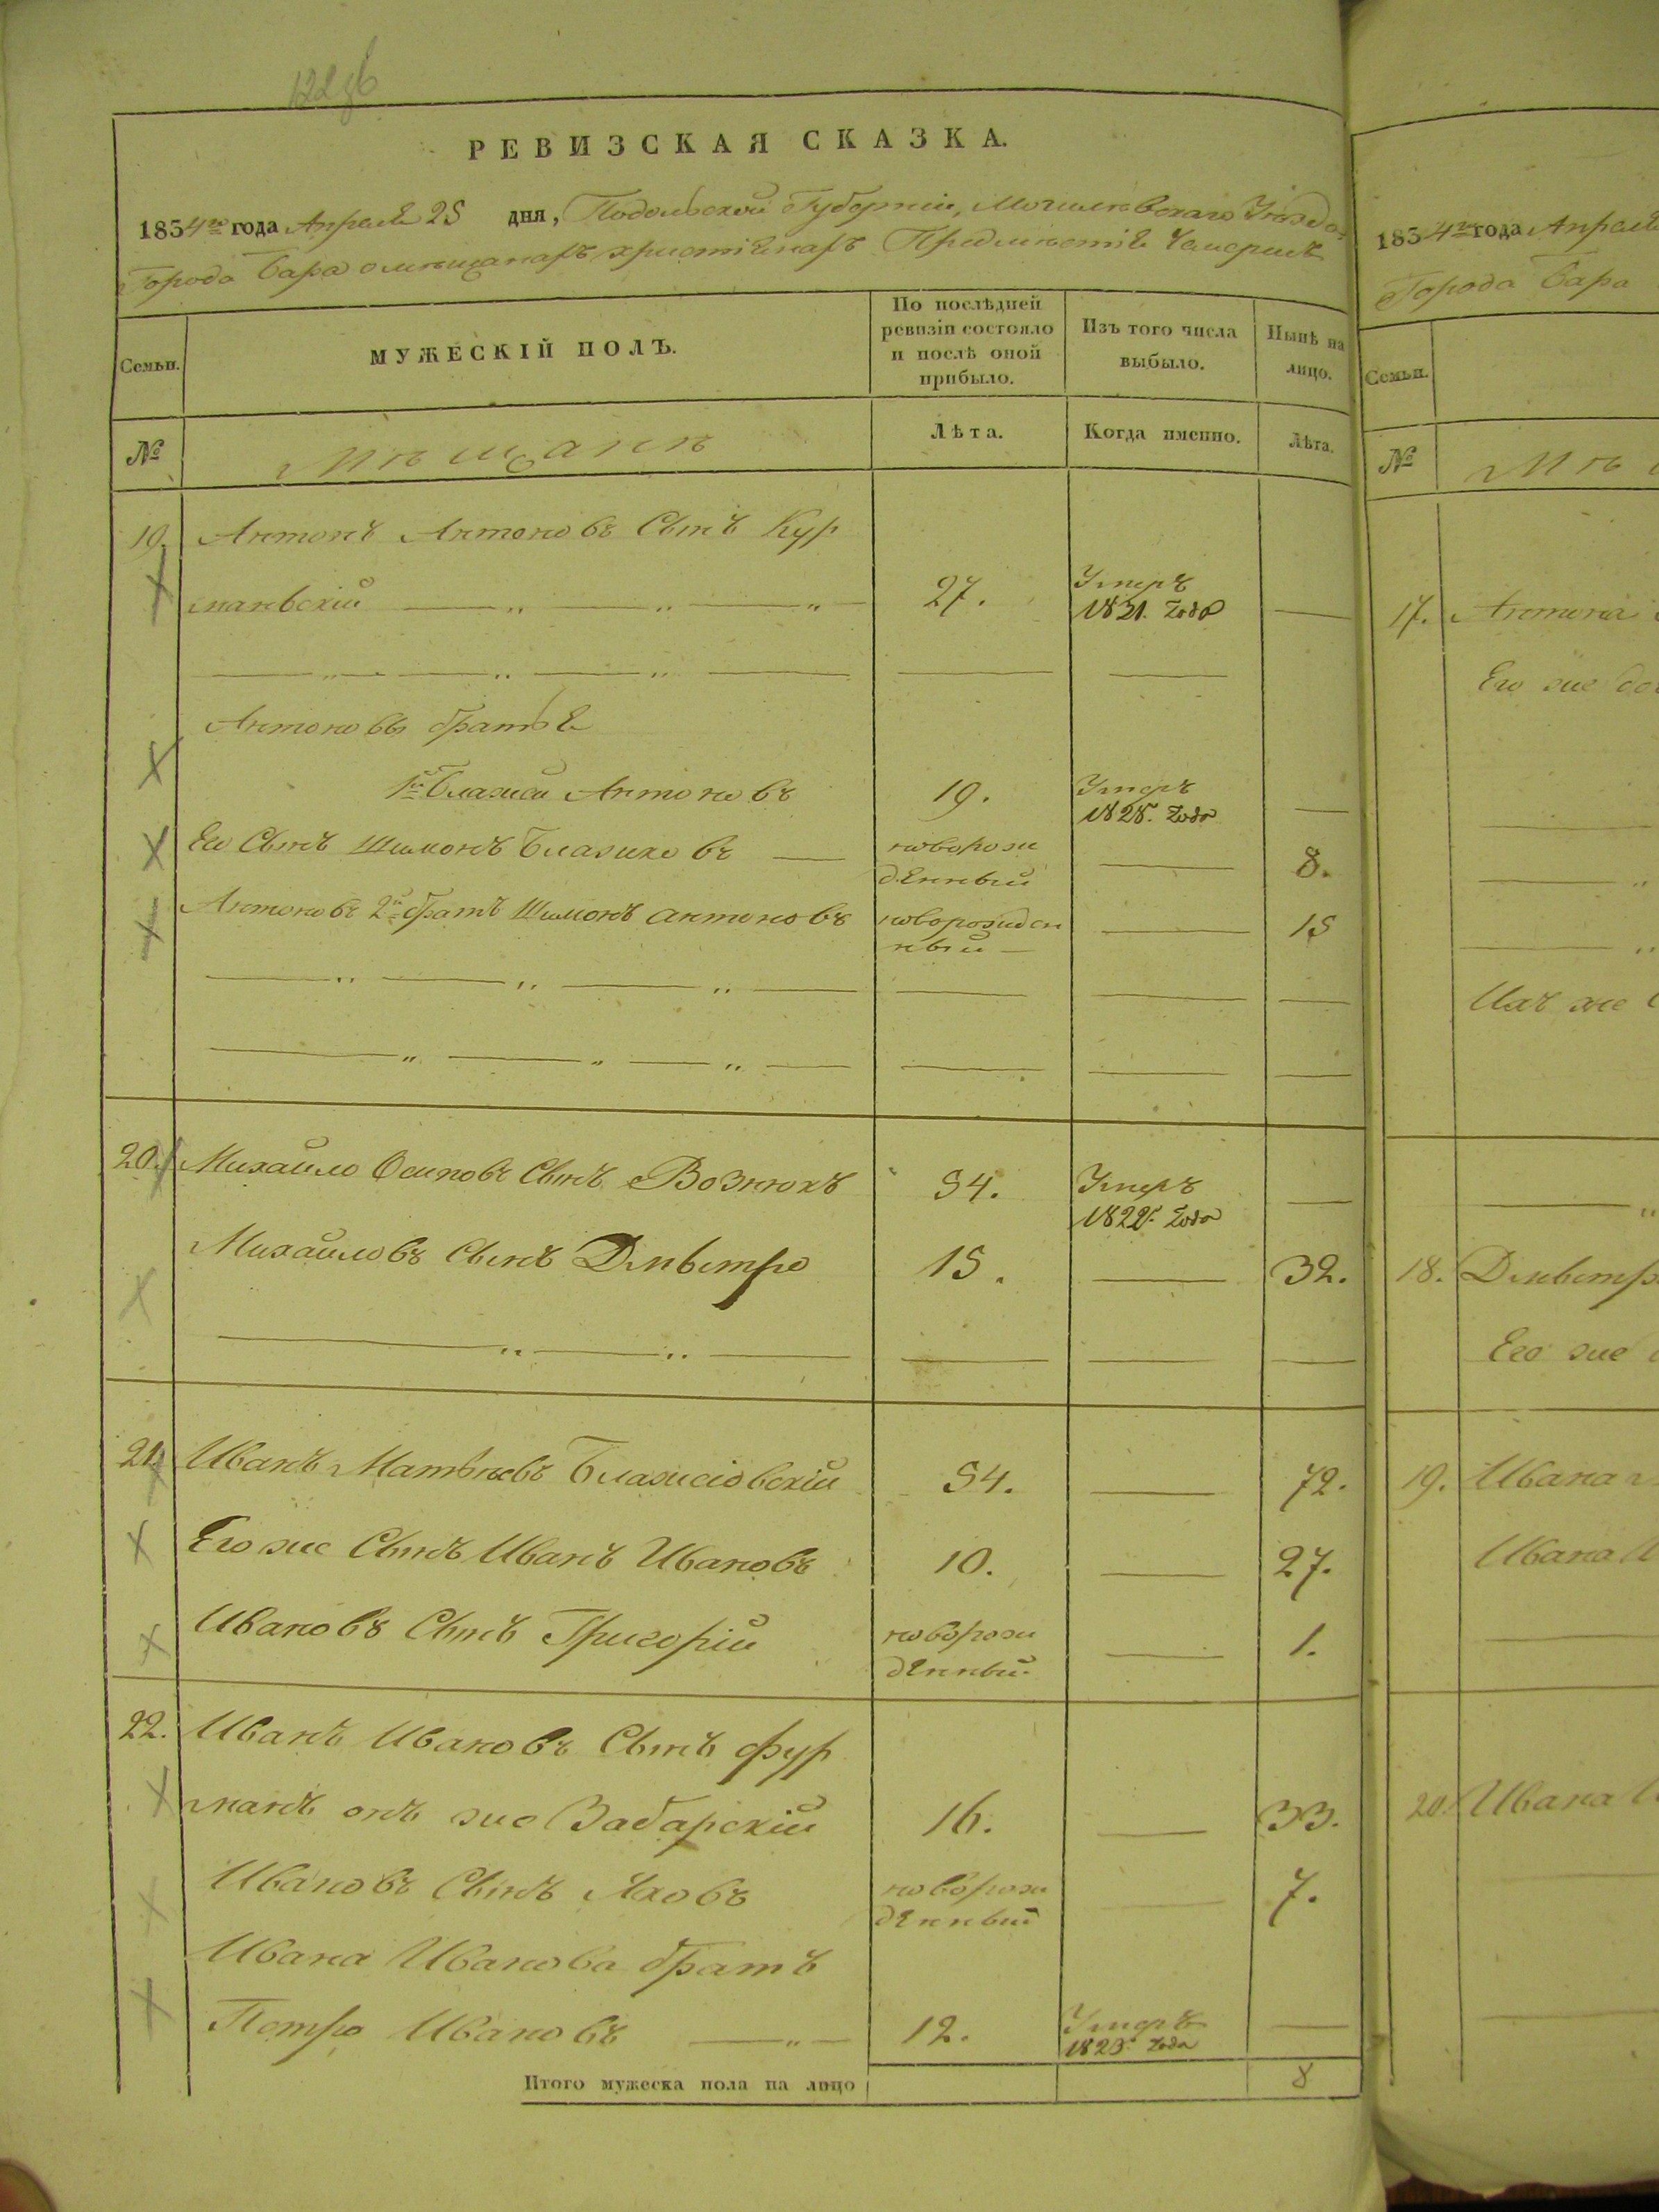 РЕВИЗСКАЯ СКАЗКА.
1834го года Апреля 25 дня, Подольской Губерніи, Могилевскаго Уѣзда
Города Бара о мѣщанахъ христіянахъ Предмѣстія Чемерисъ
Семьи.
МУЖЕСКІЙ ПОЛЪ.
По послѣдней ревизіи состояло и послѣ оной прибыло.
Изъ того числа выбыло.
Нынѣ на лицо.
№
Мѣщанѣ
Лѣта.
Когда именно.
Лѣта.
19. Антонъ Антоновъ Сынъ Кур
мановскій 27. Умеръ 1831. года —
Антоновы братья
1й Блажей Антоновъ 19. Умеръ 1828. года —
Его Сынъ Шимонъ Блажиковъ — новорожденный — 8.
Антоновъ 2й братъ Шимонъ Антоновъ новорожденный — — 15
20. Михайло Осиповъ Сынъ Вознюкъ 54. Умеръ 1822. года —
Михайловъ Сынъ Дмытро 15. — 32.
21. Иванъ Матѣевъ Блажіовскій 54. — 72.
Его же Сынъ Иванъ Ивановъ 10. — 27.
Ивановъ Сынъ Григорій новорожденный — 1.
22. Иванъ Ивановъ Сынъ Фур
манъ онъ же Забарскій 16. — 33.
Ивановъ Сынъ Яковъ новорожденный — 7.
Ивана Иванова братъ
Петро Ивановъ 12. Умеръ 1823. года —
Итого мужеска пола на лицо 8
1834го года Апреля
Города Бара
Семьи.
№
17. Антона
Его же
Ихъ же
18. Дмытр
Его же
19. Ивана
Ивана
20. Ивана